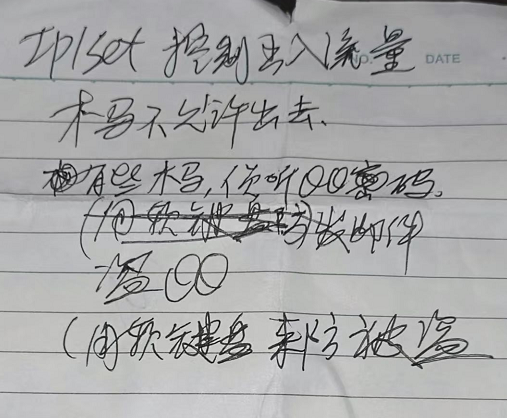 IP/Set 控制出入流量
NO. DATE
木马不允许出去.
有些木马,侦听QQ密码.
(用软键盘防)发邮件
盗QQ
(用软键盘 来防被盗